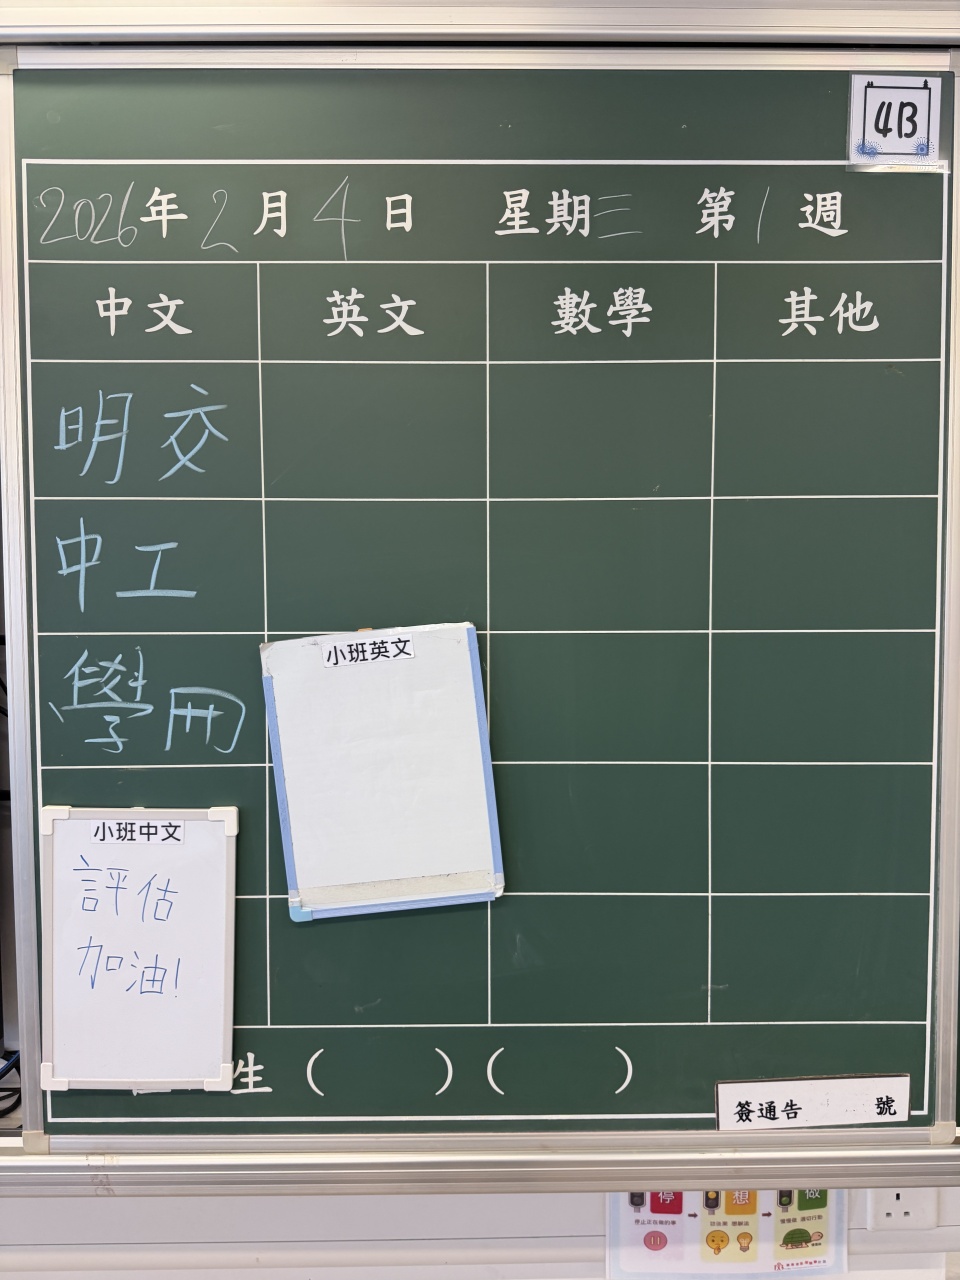 4B
2026年2月4日 星期三 第1週
中文 英文 數學 其他
明交
中工
學冊
小班英文
小班中文
評估
加油!
生 ( ) ( )
簽通告 號
停 想 做